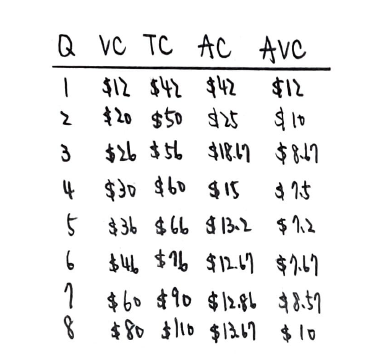 Q VC TC AC AVC
1 $12 $42 $42 $12
2 $20 $50 $25 $10
3 $26 $56 $18.67 $8.67
4 $30 $60 $15 $7.5
5 $36 $66 $13.2 $7.2
6 $46 $76 $12.67 $7.67
7 $60 $90 $12.86 $8.57
8 $80 $110 $13.67 $10